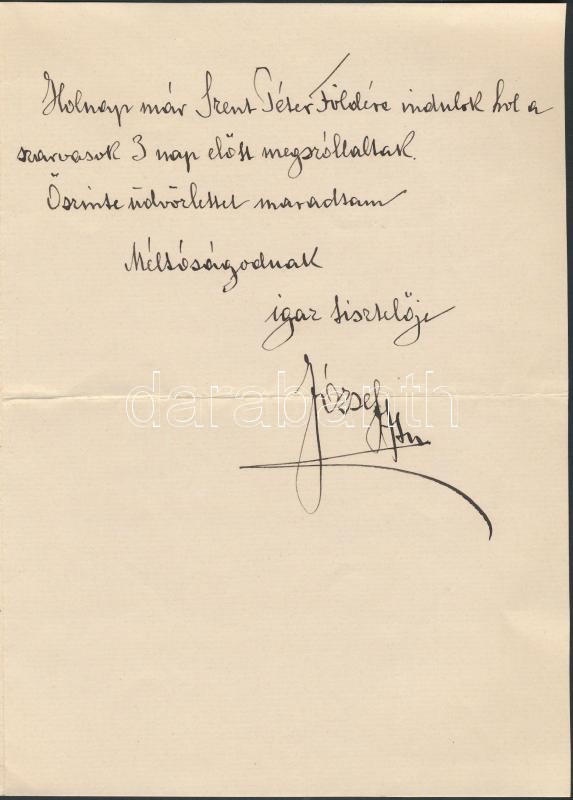 Holnap már Szent Péter Földére indulok hol a
szarvasok 3 nap előtt megszóllaltak.
Őszinte üdvözlettel maradtam
Méltóságodnak
igaz tisztelője
József
darabanth